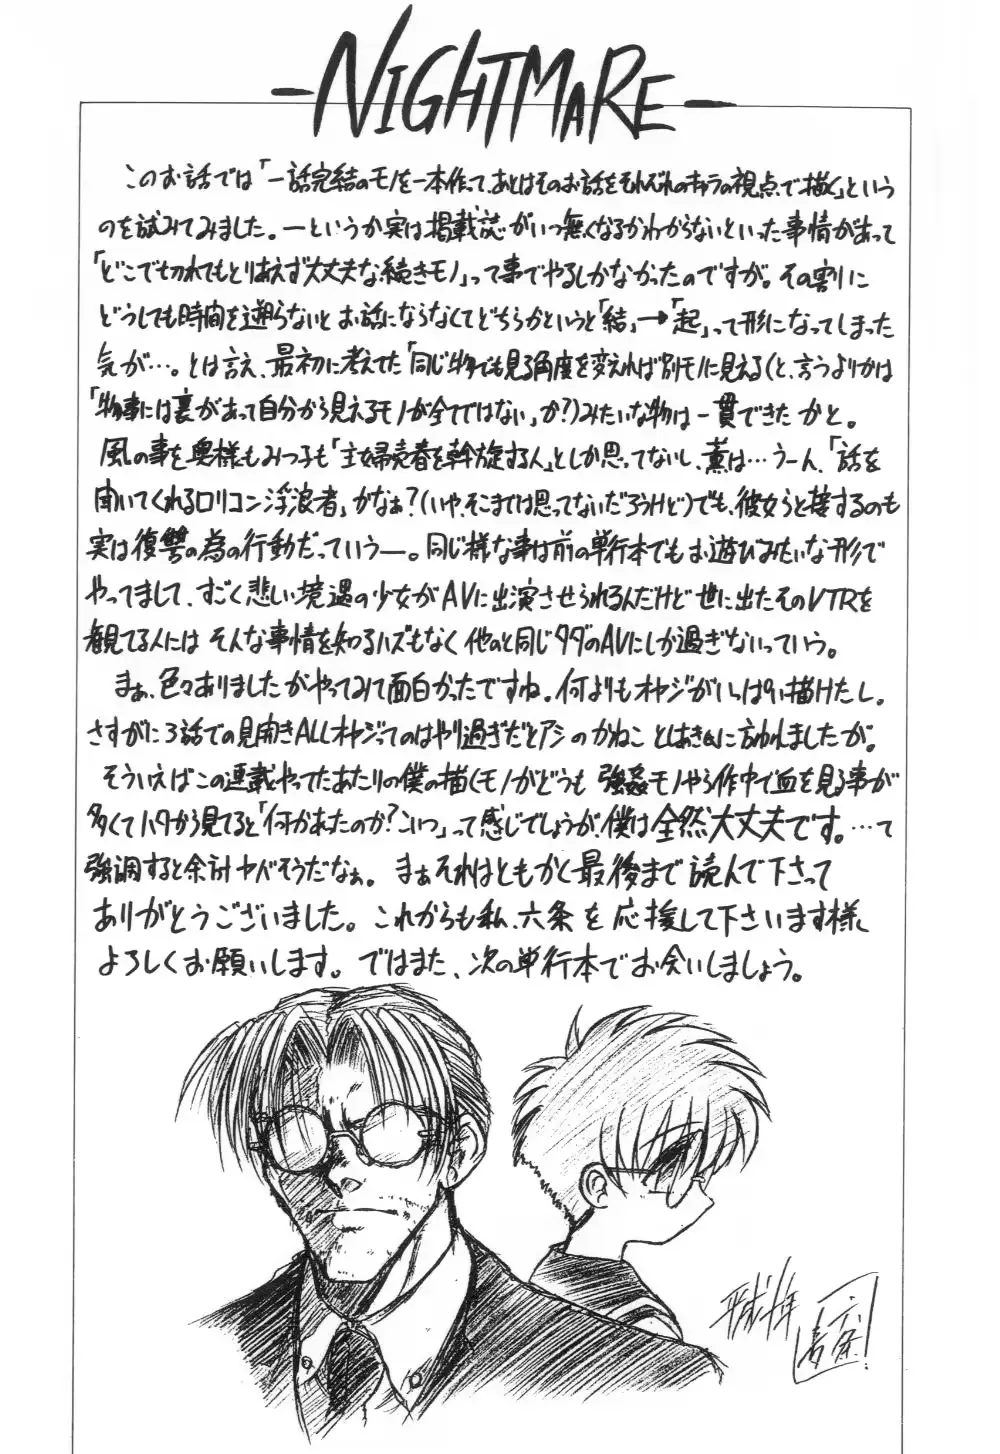 -NIGHTMARE-
このお話では「一話完結のモノを一本作って、あとはそのお話をそれぞれのキャラの視点で描く」という
のを試みてみました。ーというか実は掲載誌がいつ無くなるかわからないといった事情があって
「どこで切れてもとりあえず大丈夫な続きモノ」って事でやるしかなかったのですが。その割に
どうしても時間を遡らないとお話にならなくてどちらかというと「結」→「起」って形になってしまった
気が…。とは言え、最初に考えてた「同じ物でも見る角度を変えれば別モノに見える(と、言うよりかは
「物事には裏があって自分から見えるモノが全てではない」か?)みたいな物は一貫できたかと。
風の事を奥様もみつ子も「主婦売春を斡旋する人」としか思ってないし、薫は…うーん、「話を
聞いてくれるロリコン浮浪者」かなぁ?(いや、そこまでは思ってないだろうけど)でも、彼女らと接するのも
実は復讐の為の行動だっていうー。同じ様な事は前の単行本でもお遊びみたいな形で
やってまして、すごく悲しい境遇の少女がAVに出演させられるんだけど世に出たそのVTRを
観てる人にはそんな事情を知るハズもなく他のと同じタダのAVにしか過ぎないっていう。
まぁ、色々ありましたがやってみて面白かったですね。何よりもオヤジがいっぱい描けたし。
さすがに3話での見開きALLオヤジってのはやり過ぎだとアシのかねことしあきさんに言われましたが。
そういえばこの連載やってたあたりの僕の描くモノがどうも強姦モノやら作中で血を見る事が
多くてハタから見てると「何かあったのか?こいつ」って感じでしょうが、僕は全然大丈夫です。…て
強調すると余計ヤバそうだなぁ。まぁそれはともかく最後まで読んで下さって
ありがとうございました。これからも私、六条を応援して下さいます様、
よろしくお願いします。ではまた、次の単行本でお会いしましょう。
平成十年
六条